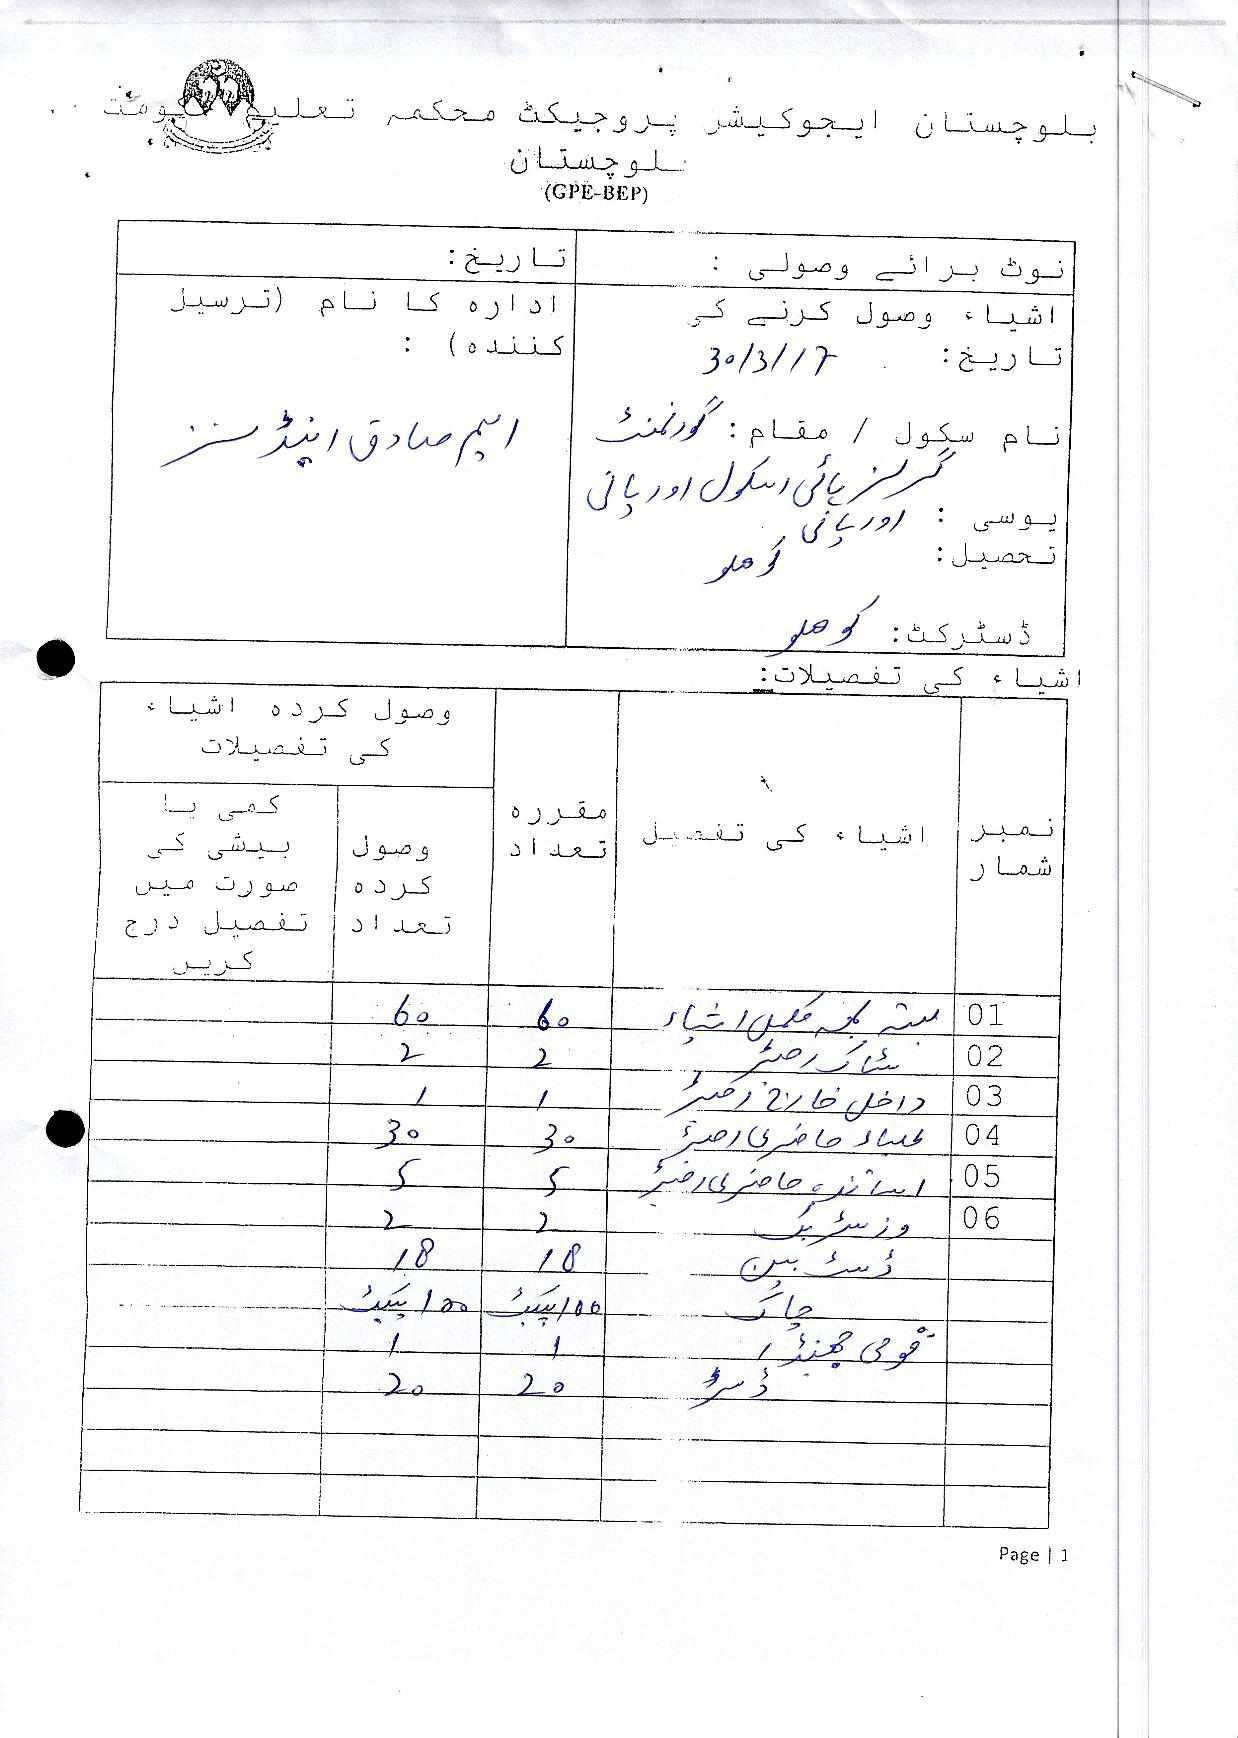 بلوچستان ایجوکیشر پروجیکٹ محکمہ تعلیم حکومت
بلوچستان
(GPE-BEP)
نوٹ برائے وصولی :
تاریخ:
اشیاء وصول کرنے کی
تاریخ: 30/3/17
نام سکول / مقام: گورنمنٹ
گرلز ہائی اسکول اوریانی
یوسی : اوریانی
تحصیل: کوھلو
ڈسٹرکٹ: کوھلو
ادارہ کا نام (ترسیل
کنندہ) :
ایم صادق اینڈ سنز
اشیاء کی تفصیلات:
نمبر شمار
اشیاء کی تفصیل
مقررہ تعداد
وصول کردہ اشیاء
کی تفصیلات
وصول
کردہ
تعداد
کمی یا
بیشی کی
صورت میں
تفصیل درج
کریں
01 بستہ بمہ مکمل اشیاء 60 60
02 سٹاک رجسٹر 2 2
03 داخل خارج رجسٹر 1 1
04 طلباء حاضری رجسٹر 30 30
05 اساتذہ حاضری رجسٹر 5 5
06 وزٹر بک 2 2
ڈسٹ بین 18 18
چاک 100 پیکٹ 100 پیکٹ
قومی جھنڈا 1 1
ڈسٹر 20 20
Page | 1